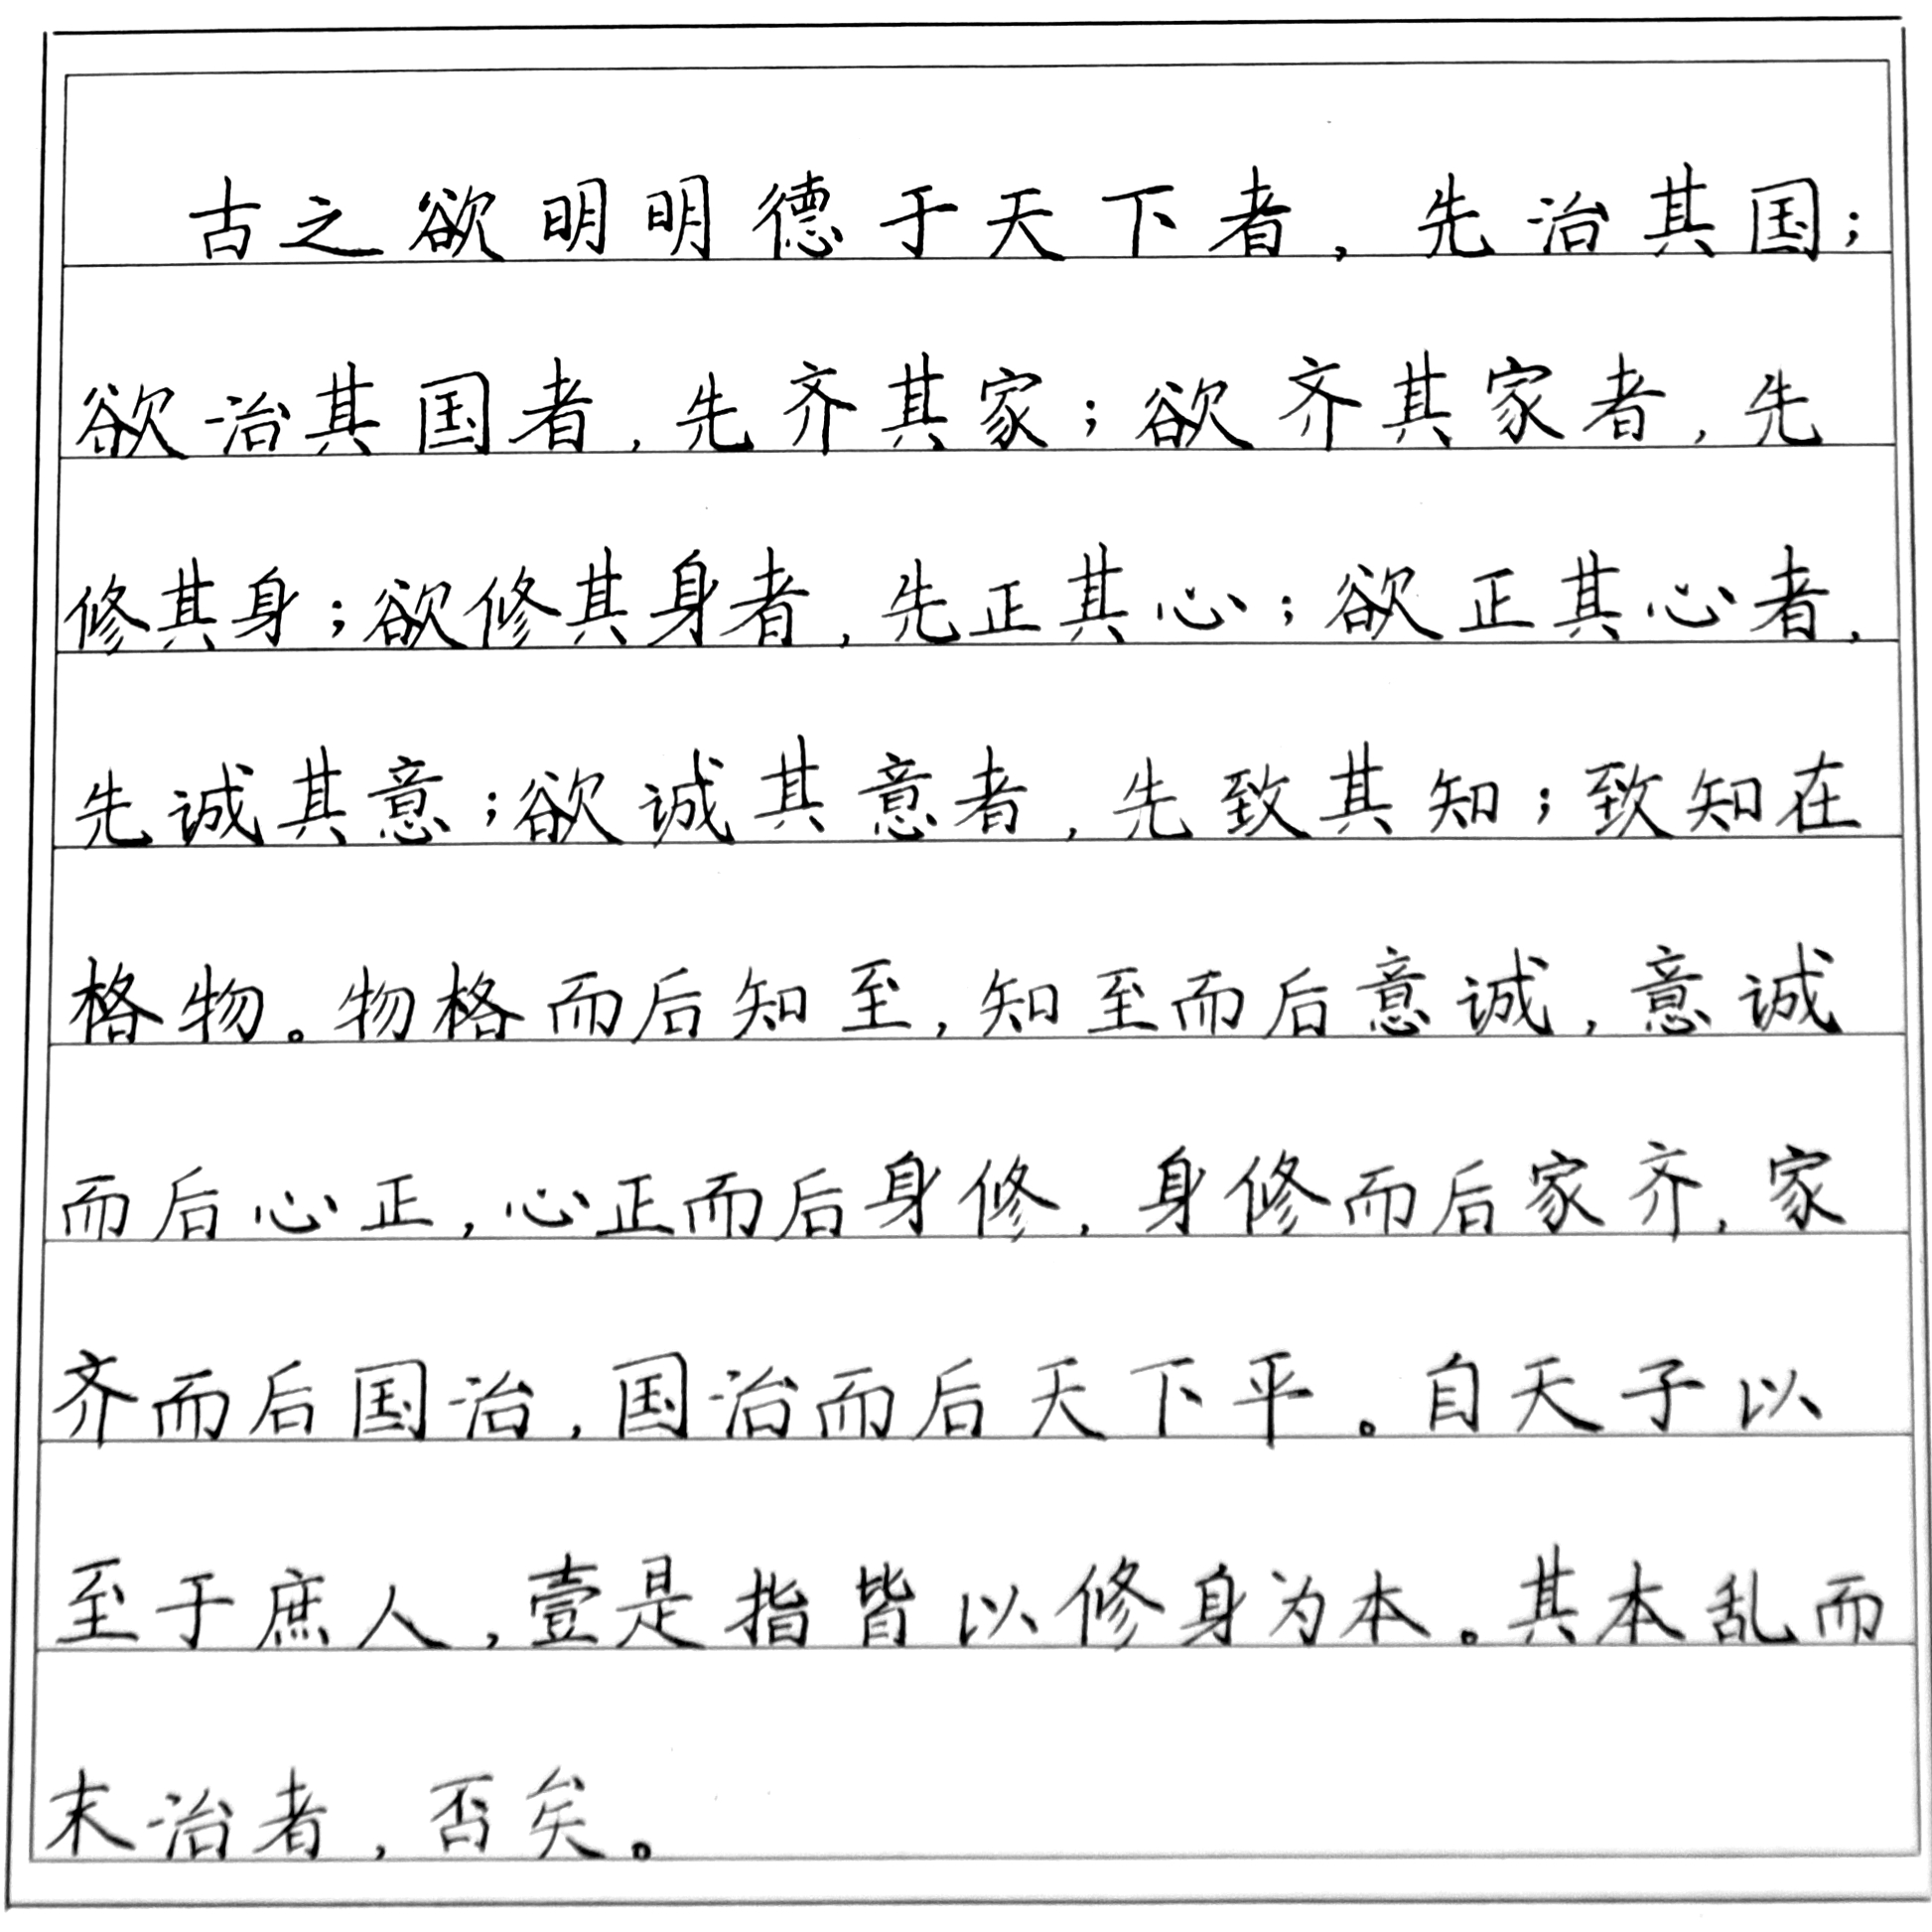 古之欲明明德于天下者，先治其国；
欲治其国者，先齐其家；欲齐其家者，先
修其身；欲修其身者，先正其心；欲正其心者，
先诚其意；欲诚其意者，先致其知；致知在
格物。物格而后知至，知至而后意诚，意诚
而后心正，心正而后身修，身修而后家齐，家
齐而后国治，国治而后天下平。自天子以
至于庶人，壹是指皆以修身为本。其本乱而
末治者，否矣。